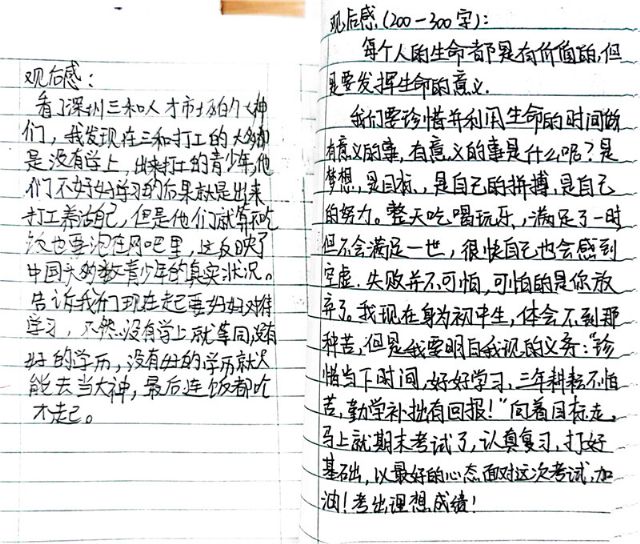 观后感：
看了深圳三和人才市场的大神
们，我发现在三和打工的大多都
是没有学上，出来打工的青少年，他
们不好好学习的后果就是出来
打工养活自己，但是他们就算不吃
饭也要泡在网吧里，这反映了
中国大多数青少年的真实状况。
告诉我们现在起要好好对待
学习，不然没有学上就等同没有
好的学历，没有好的学历就只
能去当大神，最后连饭都吃
不起。
观后感(200－300字)：
每个人的生命都是有价值的，但
是要发挥生命的意义．
我们要珍惜并利用生命的时间做
有意义的事，有意义的事是什么呢？是
梦想，是目标，是自己的拼搏，是自己
的努力。整天吃喝玩乐，满足了一时
但不会满足一世，很快自己也会感到
空虚．失败并不可怕，可怕的是你放
弃了。我现在身为初中生，体会不到那
种苦，但是我要明白我现的义务：“珍
惜当下时间，好好学习，三年耕耘不怕
苦，勤学补拙有回报！”向着目标走。
马上就期末考试了，认真复习，打好
基础，以最好的心态面对这次考试，加
油！考出理想成绩！